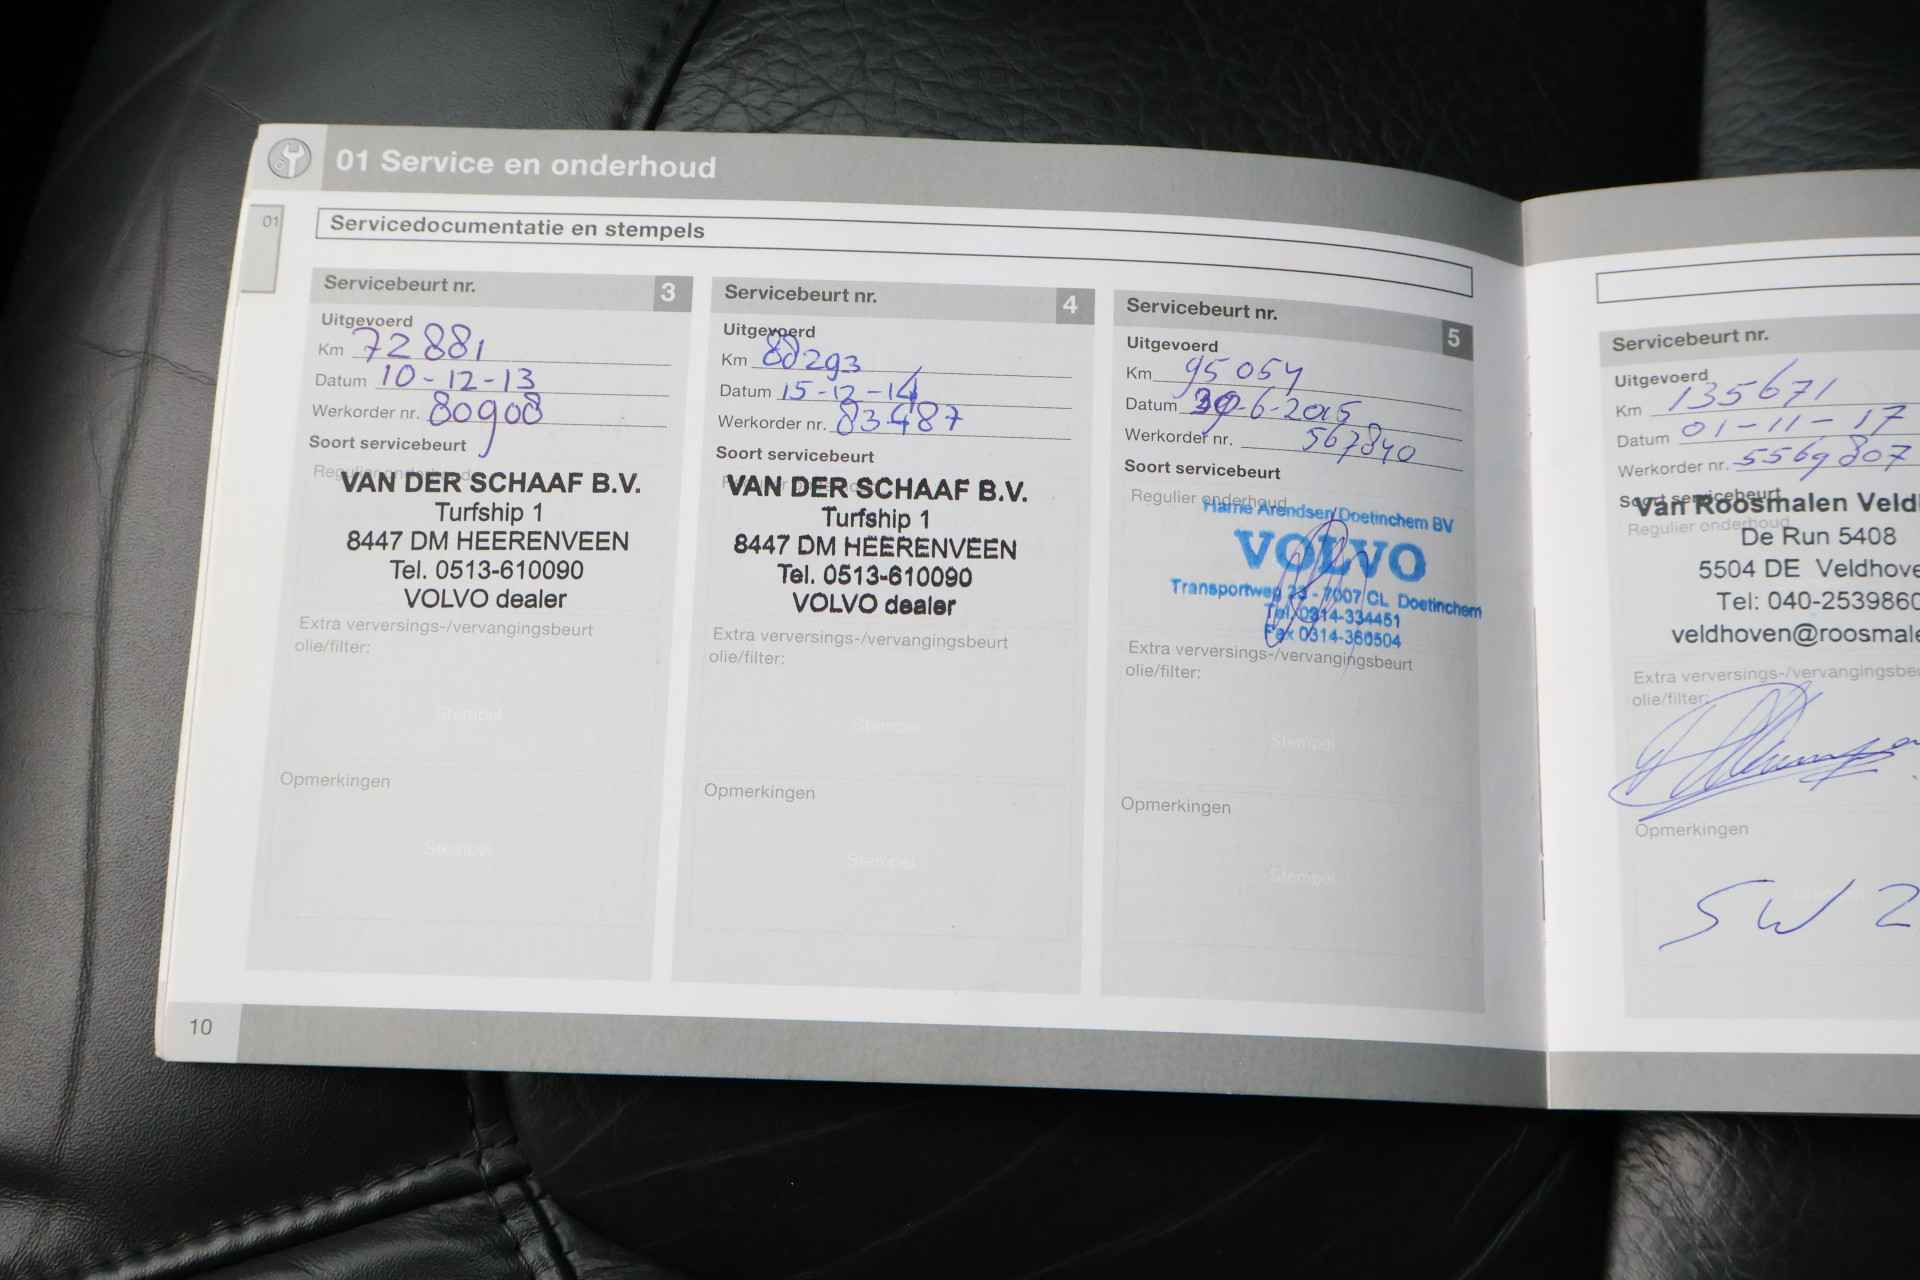 01 Service en onderhoud
01
Servicedocumentatie en stempels
Servicebeurt nr. 3
Uitgevoerd
Km 72881
Datum 10-12-13
Werkorder nr. 80908
Soort servicebeurt
Regulier onderhoud
VAN DER SCHAAF B.V.
Turfship 1
8447 DM HEERENVEEN
Tel. 0513-610090
VOLVO dealer
Extra verversings-/vervangingsbeurt
olie/filter:
Stempel
Opmerkingen
Stempel
Servicebeurt nr. 4
Uitgevoerd
Km 88293
Datum 15-12-14
Werkorder nr. 83487
Soort servicebeurt
VAN DER SCHAAF B.V.
Turfship 1
8447 DM HEERENVEEN
Tel. 0513-610090
VOLVO dealer
Extra verversings-/vervangingsbeurt
olie/filter:
Stempel
Opmerkingen
Stempel
Servicebeurt nr. 5
Uitgevoerd
Km 95054
Datum 30-6-2015
Werkorder nr. 567840
Soort servicebeurt
Regulier onderhoud
Harrie Arendsen Doetinchem BV
VOLVO
Transportweg 23 - 7007 CL Doetinchem
Tel. 0314-334451
Fax 0314-360504
Extra verversings-/vervangingsbeurt
olie/filter:
Stempel
Opmerkingen
Stempel
10
Servicebeurt nr.
Uitgevoerd
Km 135671
Datum 01-11-17
Werkorder nr. 5569807
Soort servicebeurt
Van Roosmalen Veld
Regulier onderhoud
De Run 5408
5504 DE Veldhove
Tel: 040-2539860
veldhoven@roosmale
Extra verversings-/vervangingsbe
olie/filter:
Opmerkingen
SW 2